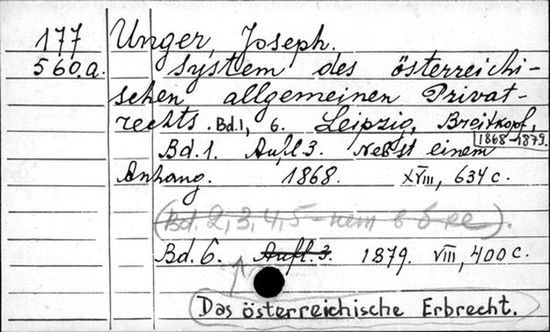 177 Unger, Joseph.
560.a. System des österreichi-
schen allgemeinen Privat-
rechts. Bd.1, 6. Leipzig, Breitkopf,
1868-1879.
Bd. 1. Aufl 3. Nebst einem
Anhang. 1868. XVIII, 634 c.
(Bd. 2, 3, 4, 5 - нет в б-ке).
Bd. 6. Aufl. 3. 1879. VIII, 400 c.
Das österreichische Erbrecht.